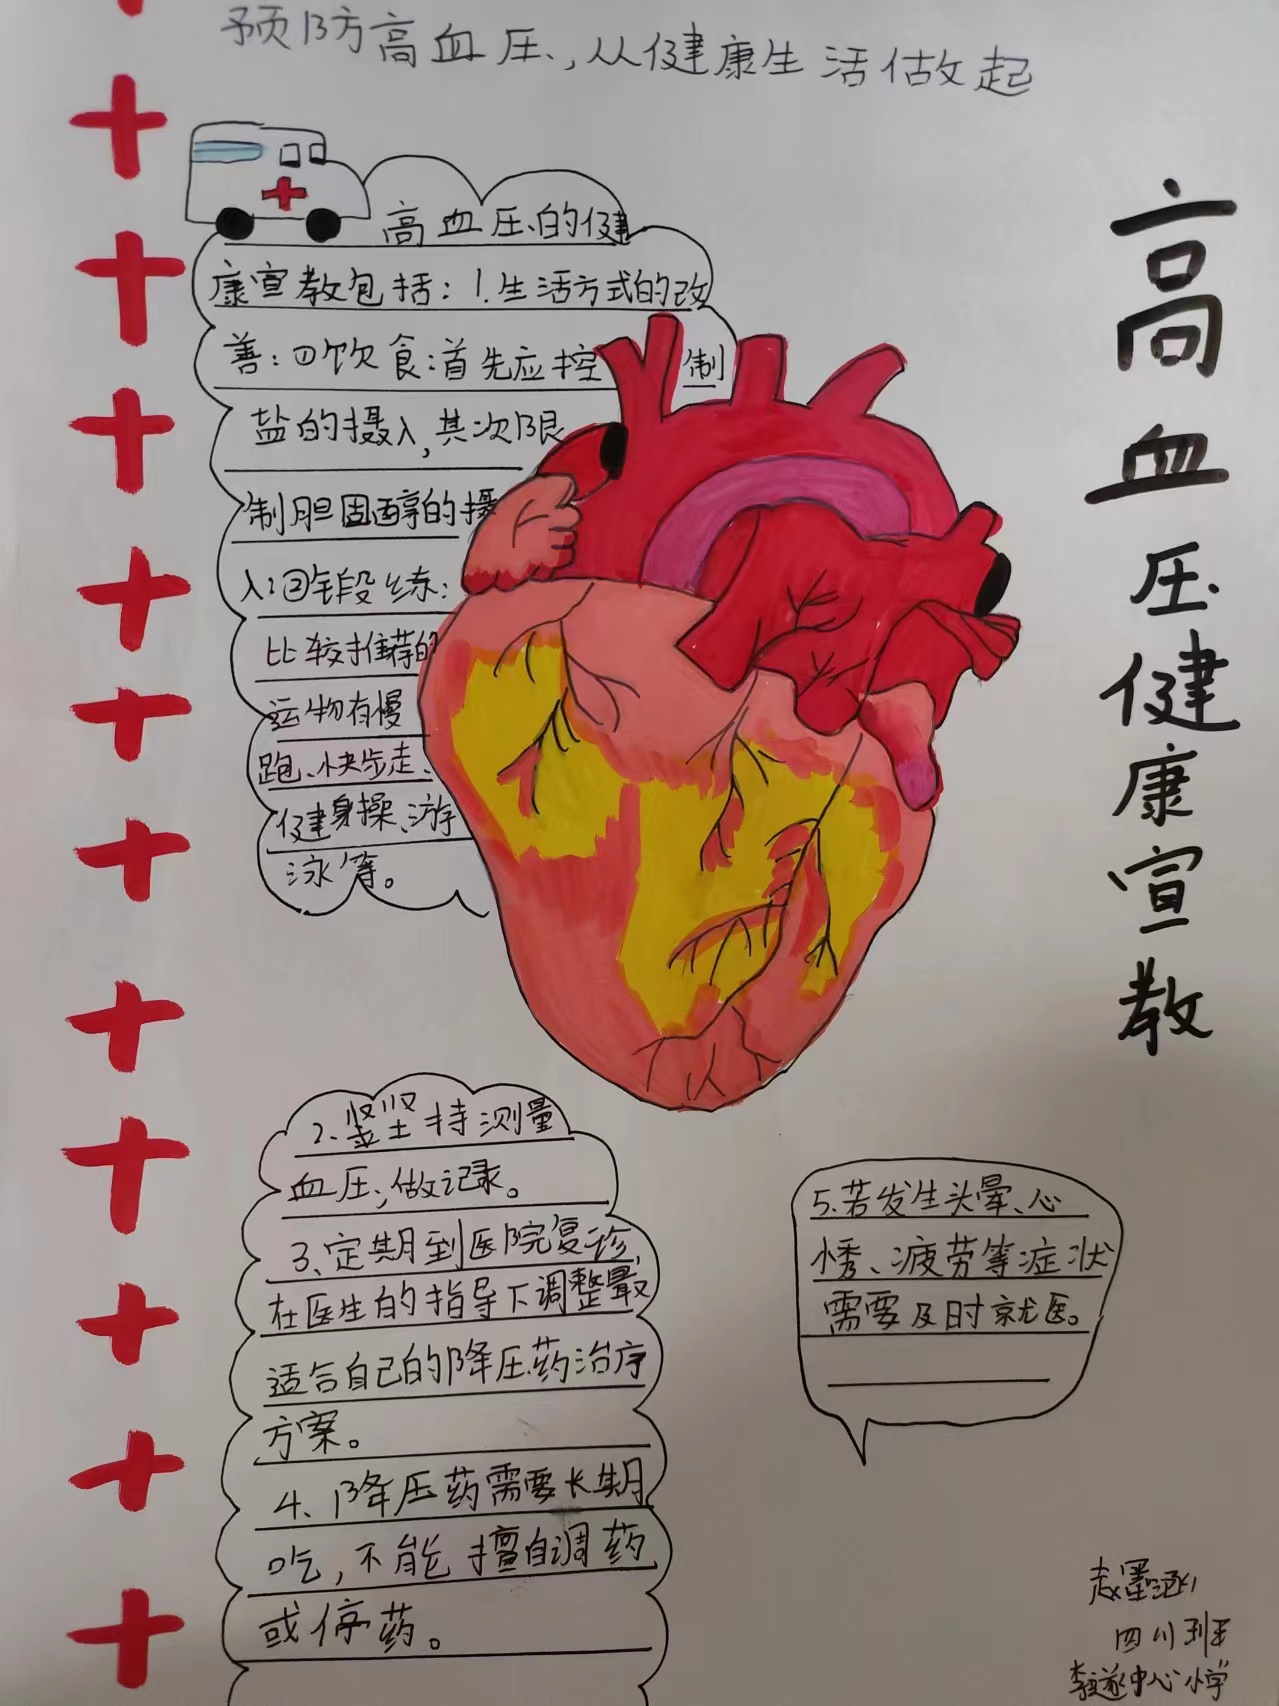 预防高血压,从健康生活做起
高血压健康宣教
高血压的健
康宣教包括:1.生活方式的改
善:①饮食:首先应控制
盐的摄入,其次限
制胆固醇的摄
入:②锻练:
比较推荐的
运物有慢
跑、快步走、
健身操、游
泳等。
2.坚持测量
血压,做记录。
3、定期到医院复诊,
在医生的指导下调整最
适合自己的降压药治疗
方案。
4、降压药需要长期
吃,不能擅自调药
或停药。
5.若发生头晕、心
悸、疲劳等症状
需要及时就医。
赵墨涵
四川班
李遂中心小学